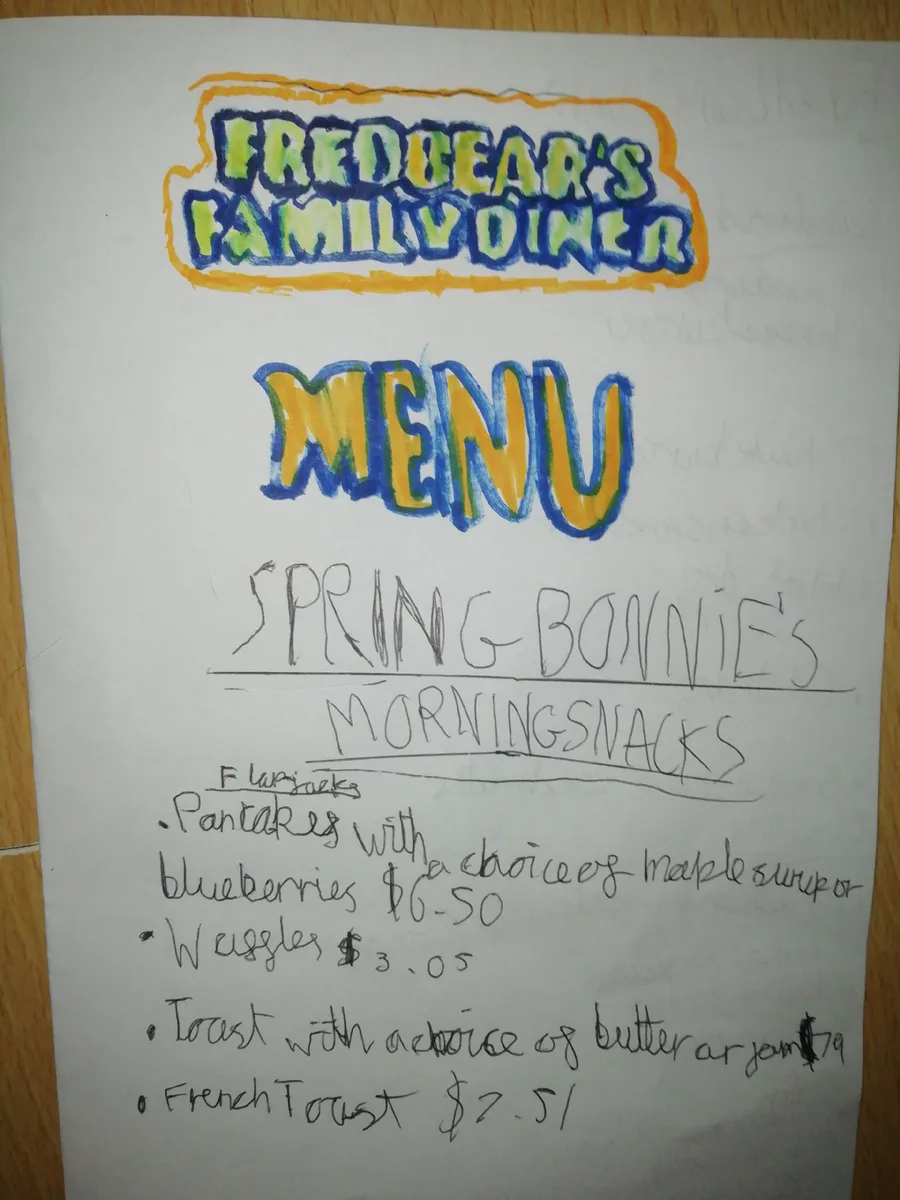 FREDBEAR'S
FAMILY DINER
MENU
SPRING BONNIE'S
MORNING SNACKS
Flapjacks
• Pancakes with a choice of maple syrup or
blueberries $6.50
• Waffles $3.05
• Toast with a choice of butter or jam
• French Toast $2.51